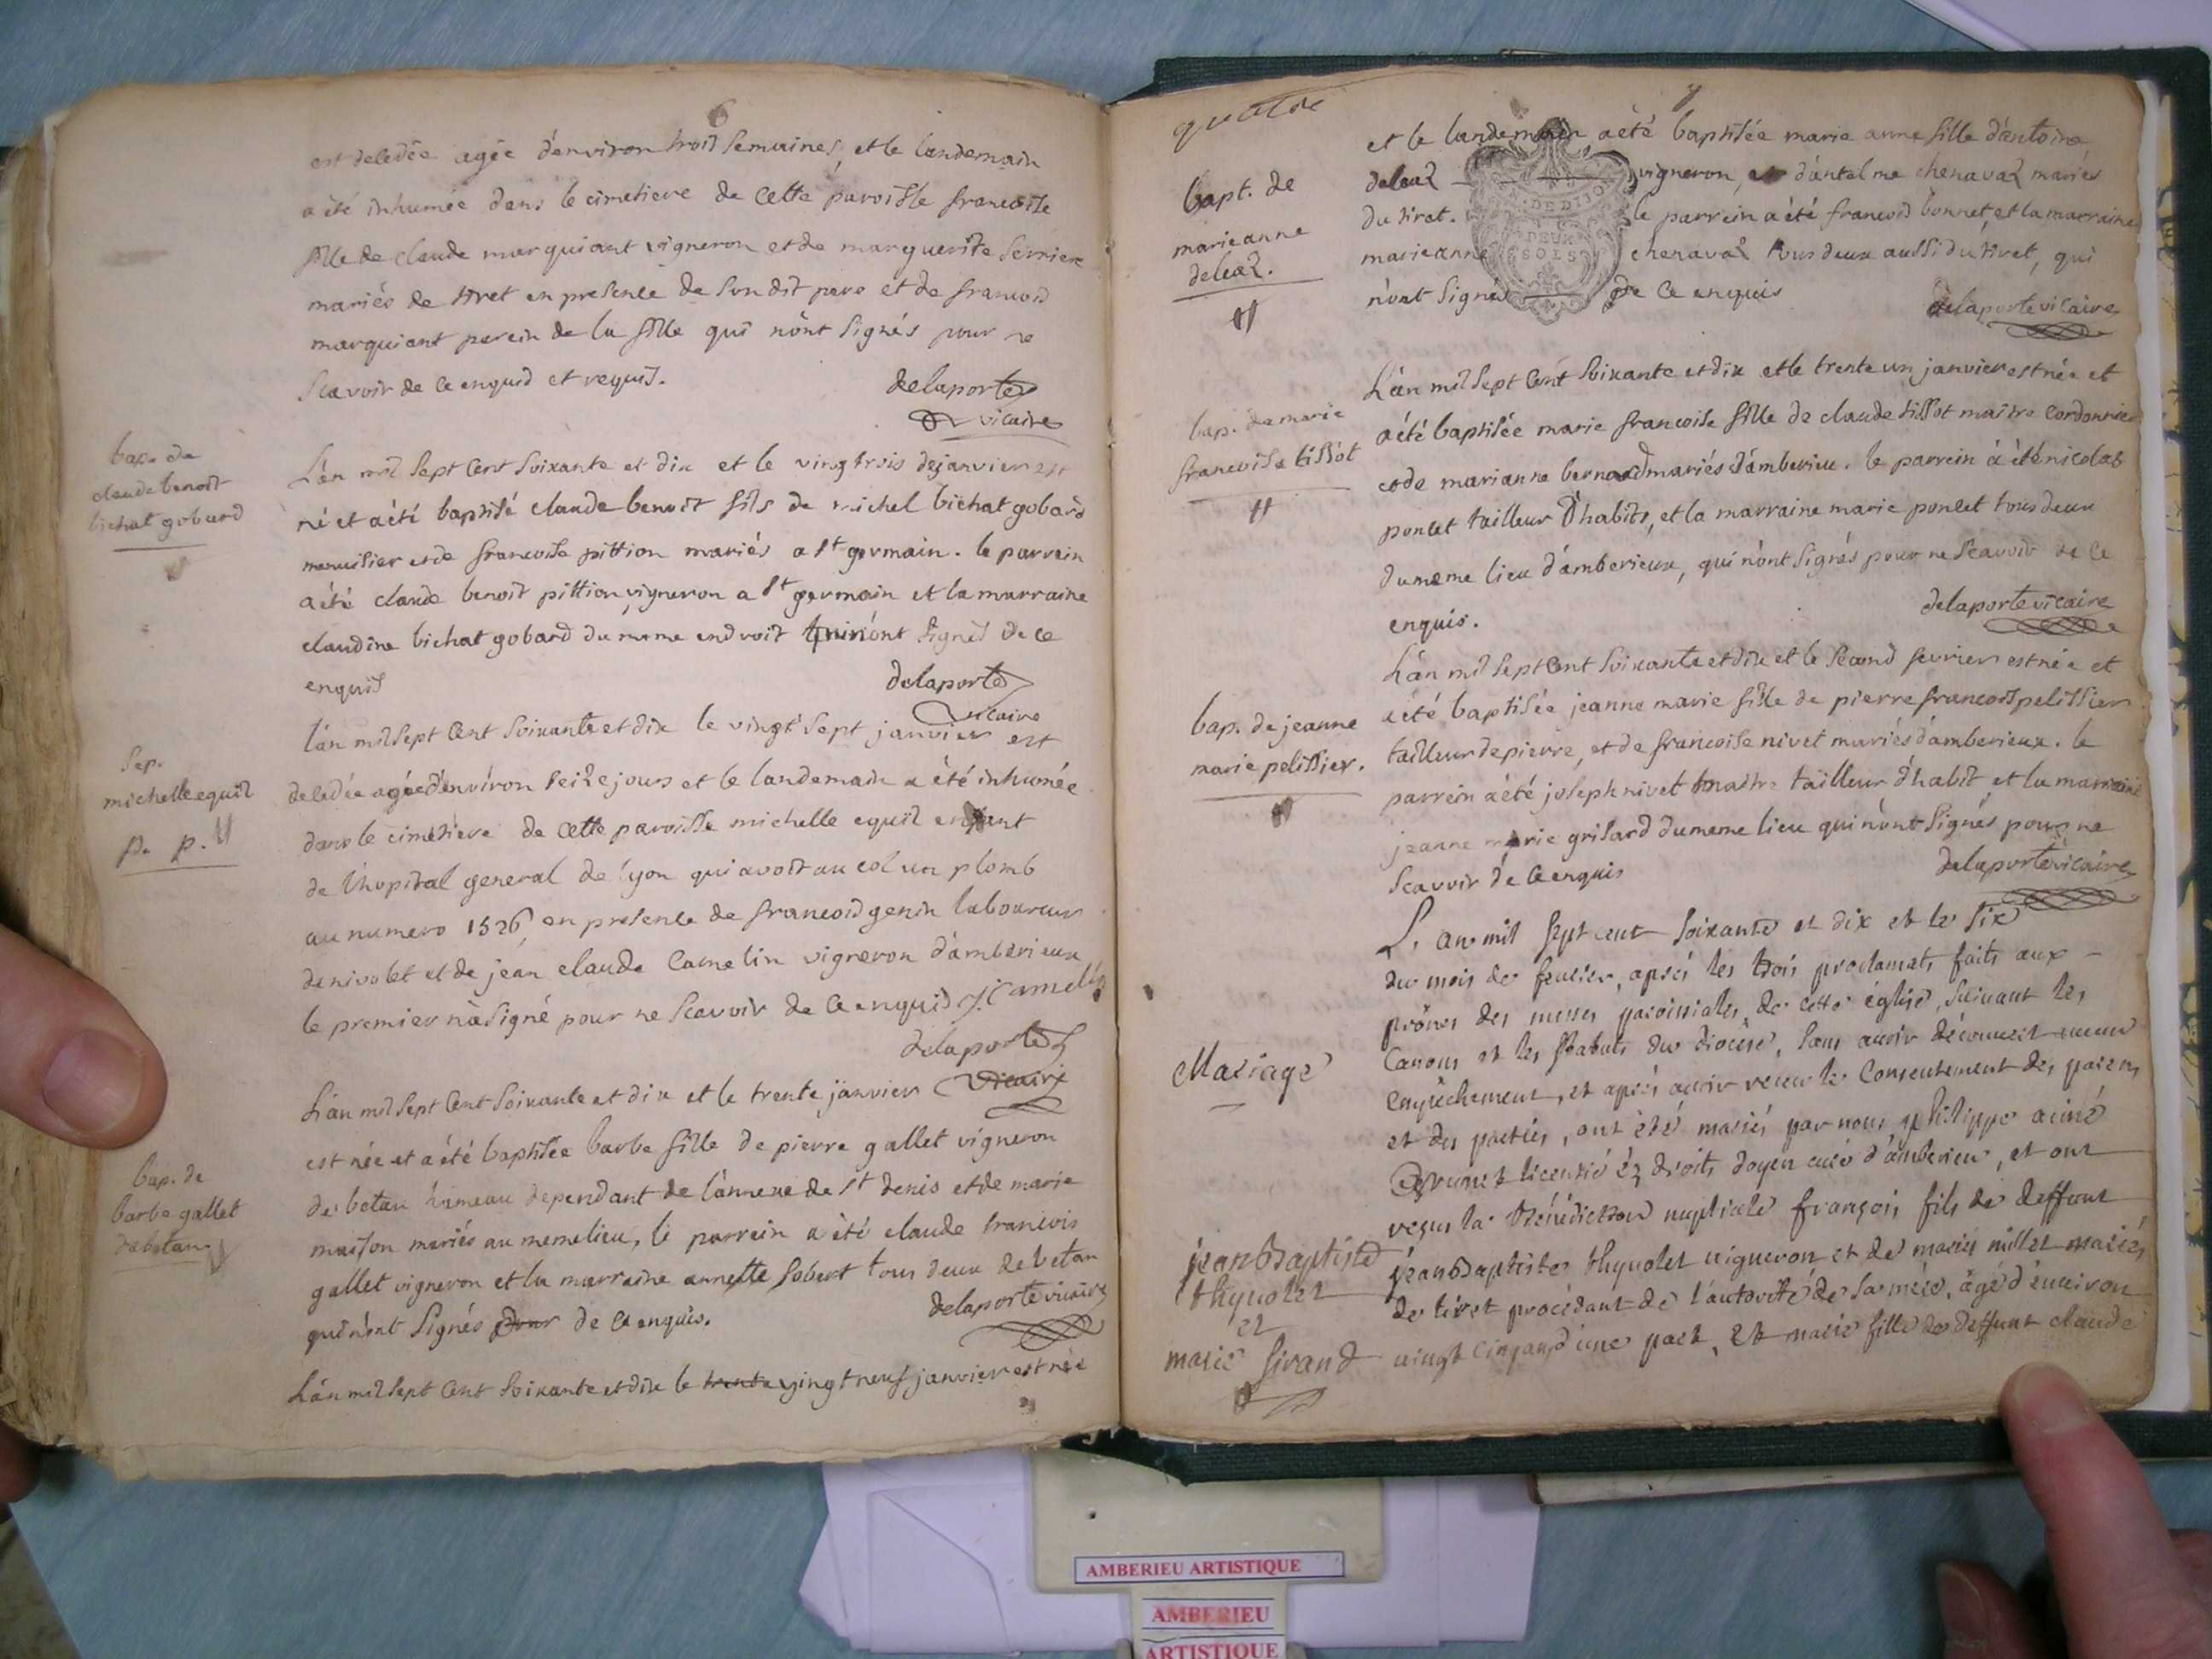 6
est decedée agée d'environ trois semaines, et le landemain
a été inhumée dans le cimetiere de cette paroisse francoise
fille de claude marquiant vigneron et de marguerite
mariés de tiret en presence de son dit pere et de francois
marquiant parein de la fille qui n'ont signés pour ne
scavoir de ce enquis et requis.
delaporte
vicaire
bap. de
claude benoit
bichat gobard
L'an mil sept cent soixante et dix et le vingtrois dejanvier est
né et a été baptisé claude benoit fils de michel bichat gobard
menuisier et de francoise pittion mariés a st germain. le parrein
a été claude benoit pittion vigneron a st germain et la marraine
claudine bichat gobard du meme endroit qui n'ont signés de ce
enquis
delaporte
vicaire
Sep.
michelle equil
l'an mil sept cent soixante et dix le vingt sept janvier est
decedée agée d'environ seize jours et le landemain a été inhumée
dans le cimetiere de cette paroisse michelle equil enfant
de l'hopital general de lyon qui avoit au col un plomb
au numero 1526 en presence de francois genin laboureur
de nivolet et de jean claude camelin vigneron d'amberieux
le premier n'a signé pour ne scavoir de ce enquis J. Camelin
delaporte
vicaire
bap. de
barbe gallet
de betan
L'an mil sept cent soixante et dix et le trente janvier
est née et a été baptisée barbe fille de pierre gallet vigneron
de betan hameau dependant de l'annexe de st denis et de marie
masson mariés au meme lieu, le parrein a été claude francois
gallet vigneron et la marraine annette jobert tous deux de betan
qui n'ont signés pour de ce enquis.
delaporte vicaire
L'an mil sept cent soixante et dix le trente vingt neuf janvier est née
quatre
7
bapt. de
marie anne
deleaz.
et le landemain a été baptisée marie anne fille d'antoine
deleaz vigneron, et d'antelme chenavaz mariés
du tiret. le parrein a été francois bonnet et la marraine
marieanne chenavaz tous deux aussi du tiret, qui
n'ont signés de ce enquis
DEUX
SOLS
delaporte vicaire
bap. de marie
francoise tissot
L'an mil sept cent soixante et dix et le trente un janvier est née et
a été baptisée marie francoise fille de claude tissot maitre cordonnier
et de marianne bernard mariés d'amberieu. le parrein a été nicolas
poncet tailleur d'habits, et la marraine marie poncet tous deux
du meme lieu d'amberieux, qui n'ont signés pour ne scavoir de ce
enquis.
delaporte vicaire
bap. de jeanne
marie pelissier.
L'an mil sept cent soixante et dix et le second fevrier est née et
a été baptisée jeanne marie fille de pierre francois pelissier
tailleur de pierre, et de francoise nivet mariés d'amberieux. le
parrein a été joseph nivet maitre tailleur d'habit et la marraine
jeanne marie grisard du meme lieu qui n'ont signés pour ne
scavoir de ce enquis
delaporte vicaire
Mariage
L'an mil sept cent soixante et dix et le six
du mois de fevrier, aprés les trois proclamats faits aux
prônes des messes paroissiales de cette église, suivant les
Canons et les statuts du diocèse, sans avoir découvert aucun
empêchement, et aprés avoir receu le consentement des parens
et des parties, ont été mariés par nous philippe aimé
Brunet licentié ez droits doyen curé d'amberieu, et ont
reçus la Bénédiction nuptiale françois fils de deffunt
jean Baptiste thynolet vigneron et de marie millet mariés
de tiret procédant de l'autorité de sa mère, âgé d'environ
vingt cinq ans d'une part, Et marie fille de deffunt claude
jean Baptiste
thynolet
et
marie Sirand
AMBERIEU ARTISTIQUE
AMBERIEU
ARTISTIQUE